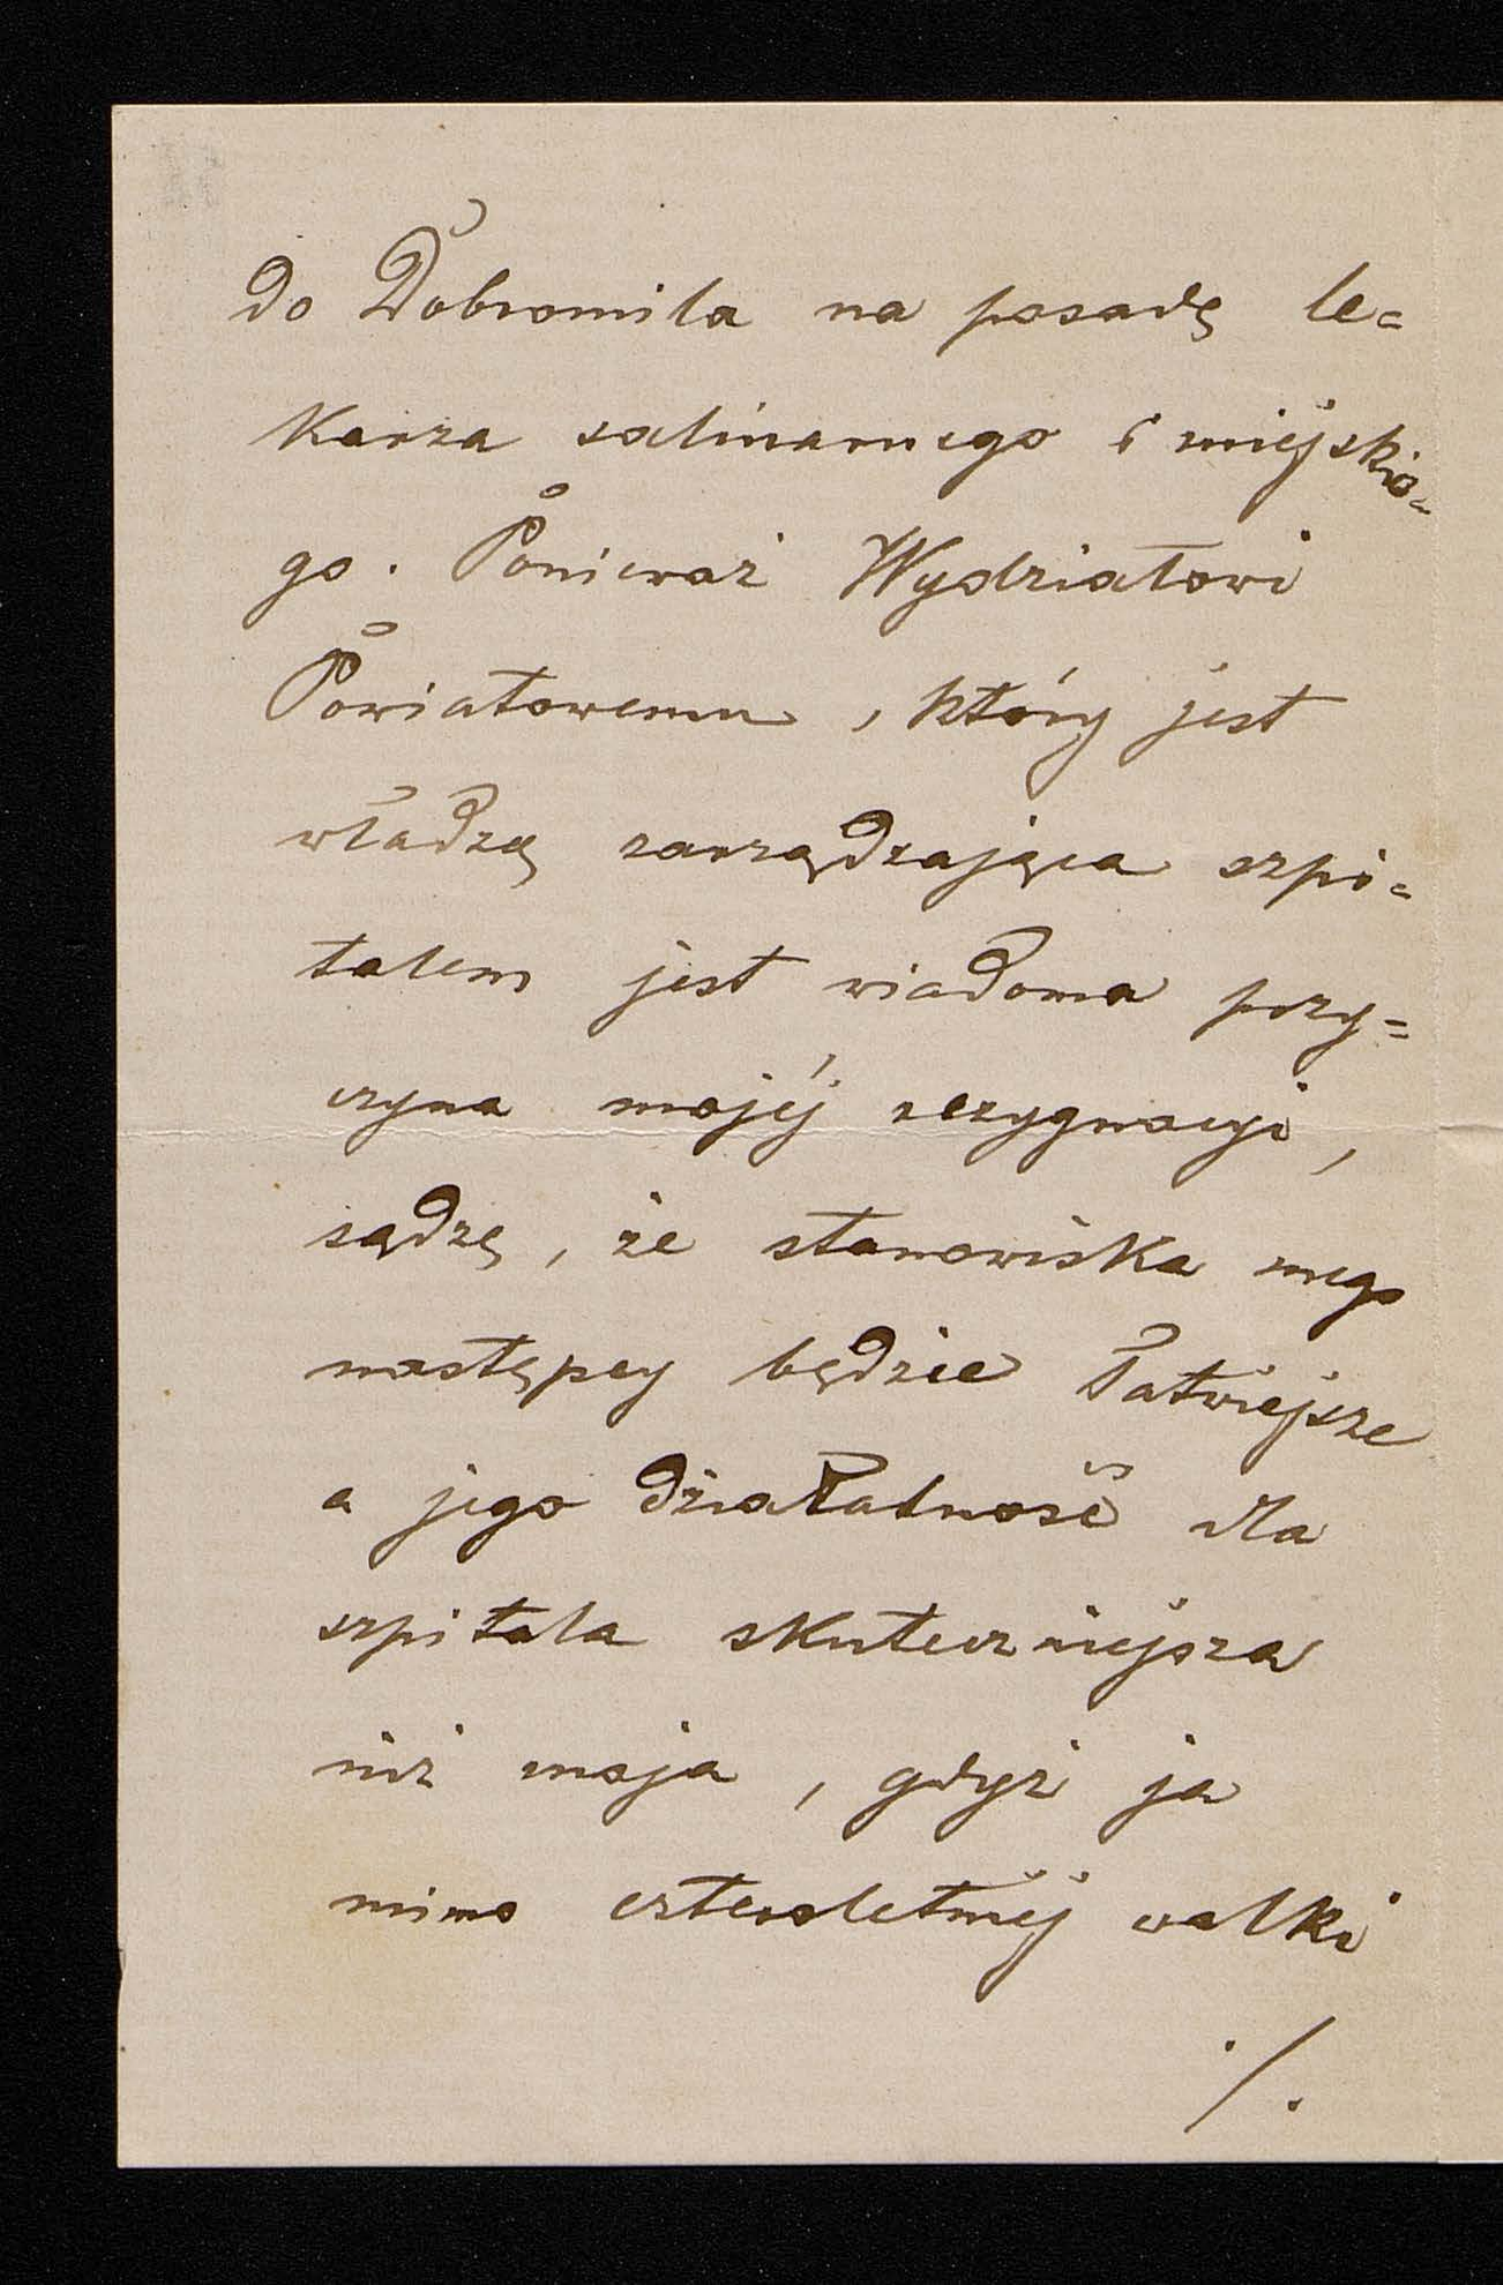 do Dobromila na posadę le=
karza salinarnego i miejskie=
go. Ponieważ Wydziałowi
Powiatowemu, który jest
władzą zarządzająca szpi=
talem jest wiadoma przy=
czyna mojéj rezygnacyi,
sądzę, że stanowiska mego
następcy będzie łatwiejsze
a jego działalność dla
szpitala skuteczniejsza
niż moja, gdyż ja
mimo czteroletniej walki
./.